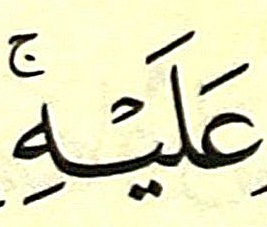 عَلَيْهِ ۚ